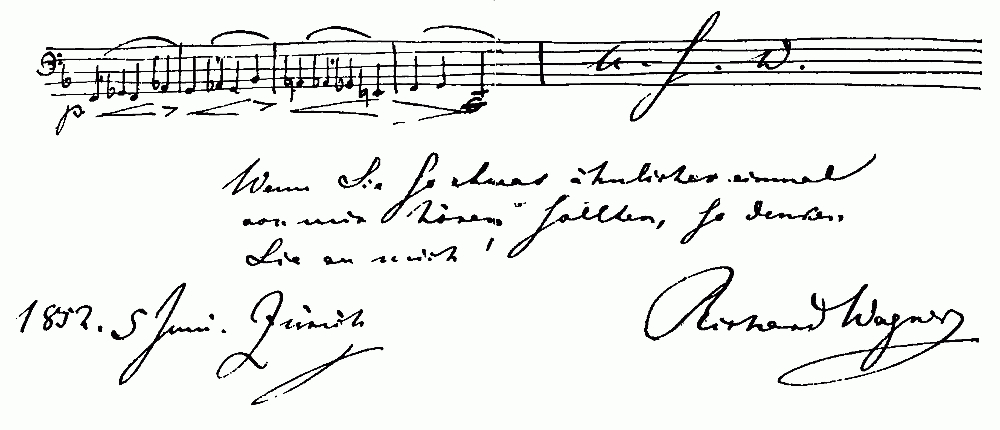 p
u. s. w.
Wenn Sie so etwas ähnliches einmal
von mir hören sollten, so denken
Sie an mich!
1852. 5 Juni. Zürich
Richard Wagner